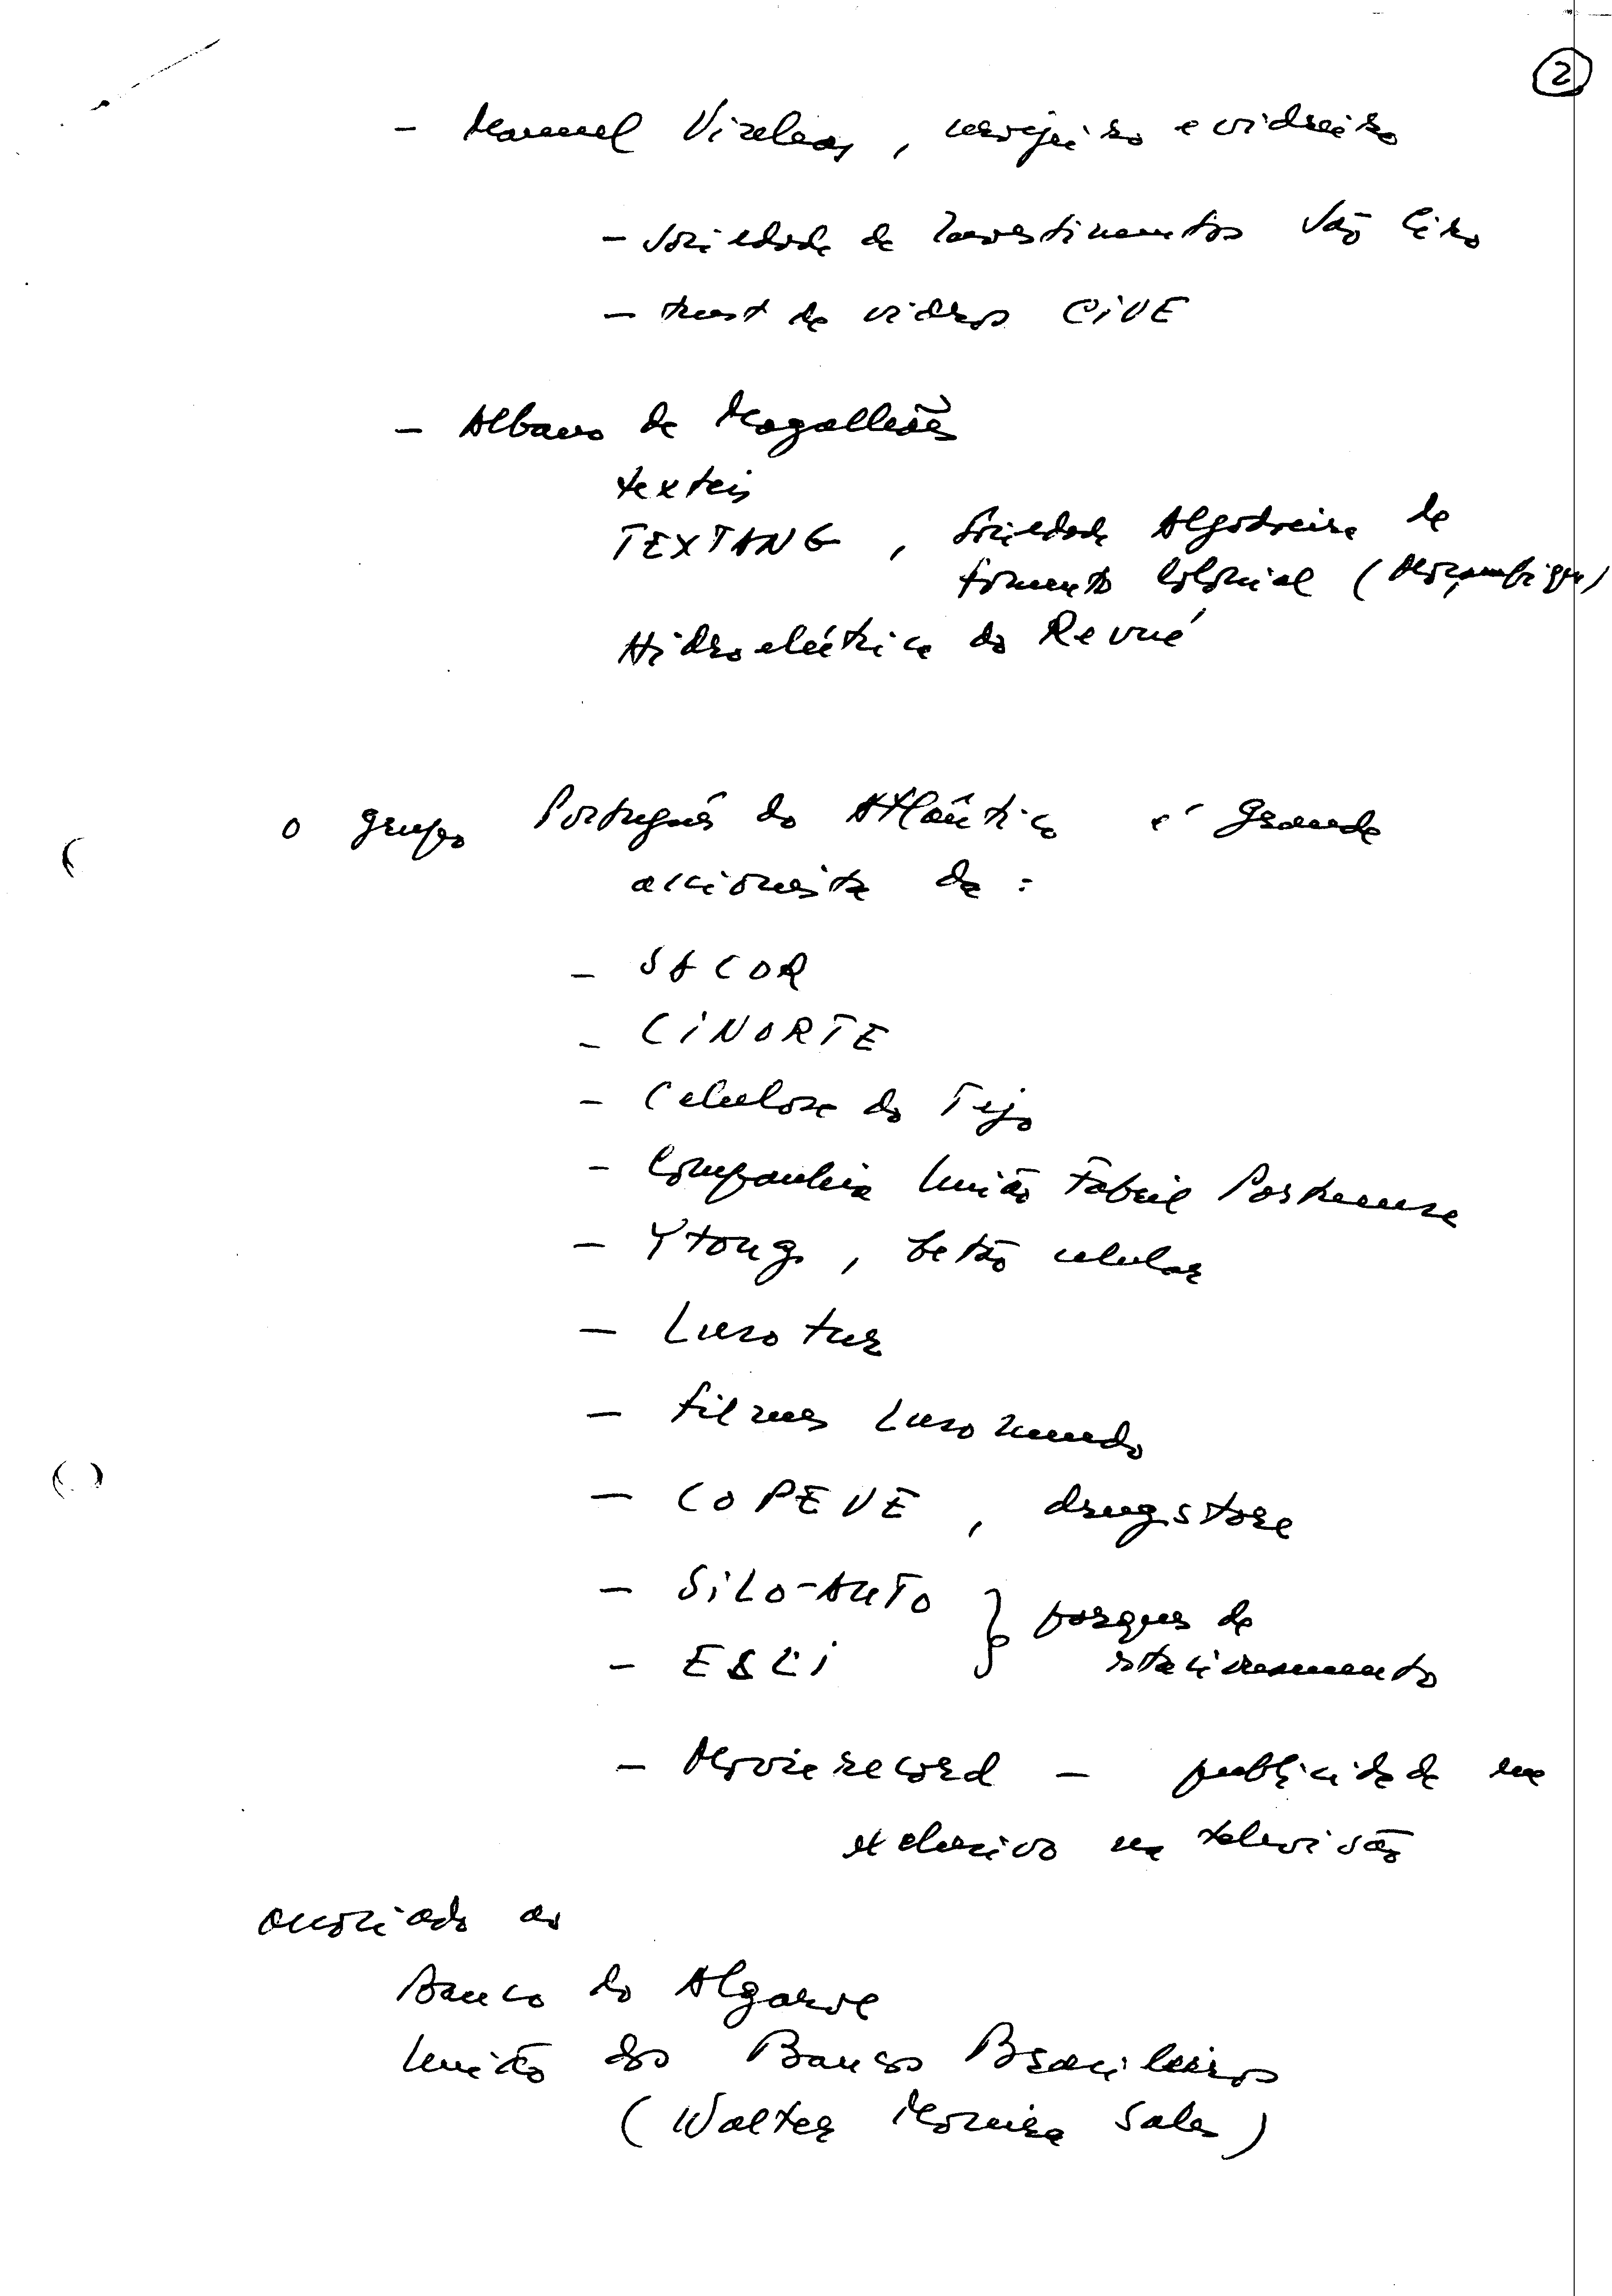 2
- Manuel Vinhas, cervejeiro e vidreiro
- Sociedade de Investimentos São Ciro
- trust de vidros CIVE
- Albano de Magalhães
texteis
TEXTANG, Sociedade Algodoeira de
Fomento Colonial (Moçambique)
Hidroeléctrica do Revué
o grupo Português do Atlântico é grande
accionista da:
- SACOR
- CINORTE
- Celulose do Tejo
- Companhia União Fabril Portuense
- Ytong, betão celular
- Lusotur
- Filmes Lusomundo
- COPEVE, drugstore
- SILO-AUTO } parques de
- ESLI estacionamento
- Movierecord - publicidade em
exclusivo na televisão
associado ao
Banco do Algarve
União dos Bancos Brasileiros
(Walter Moreira Sales)